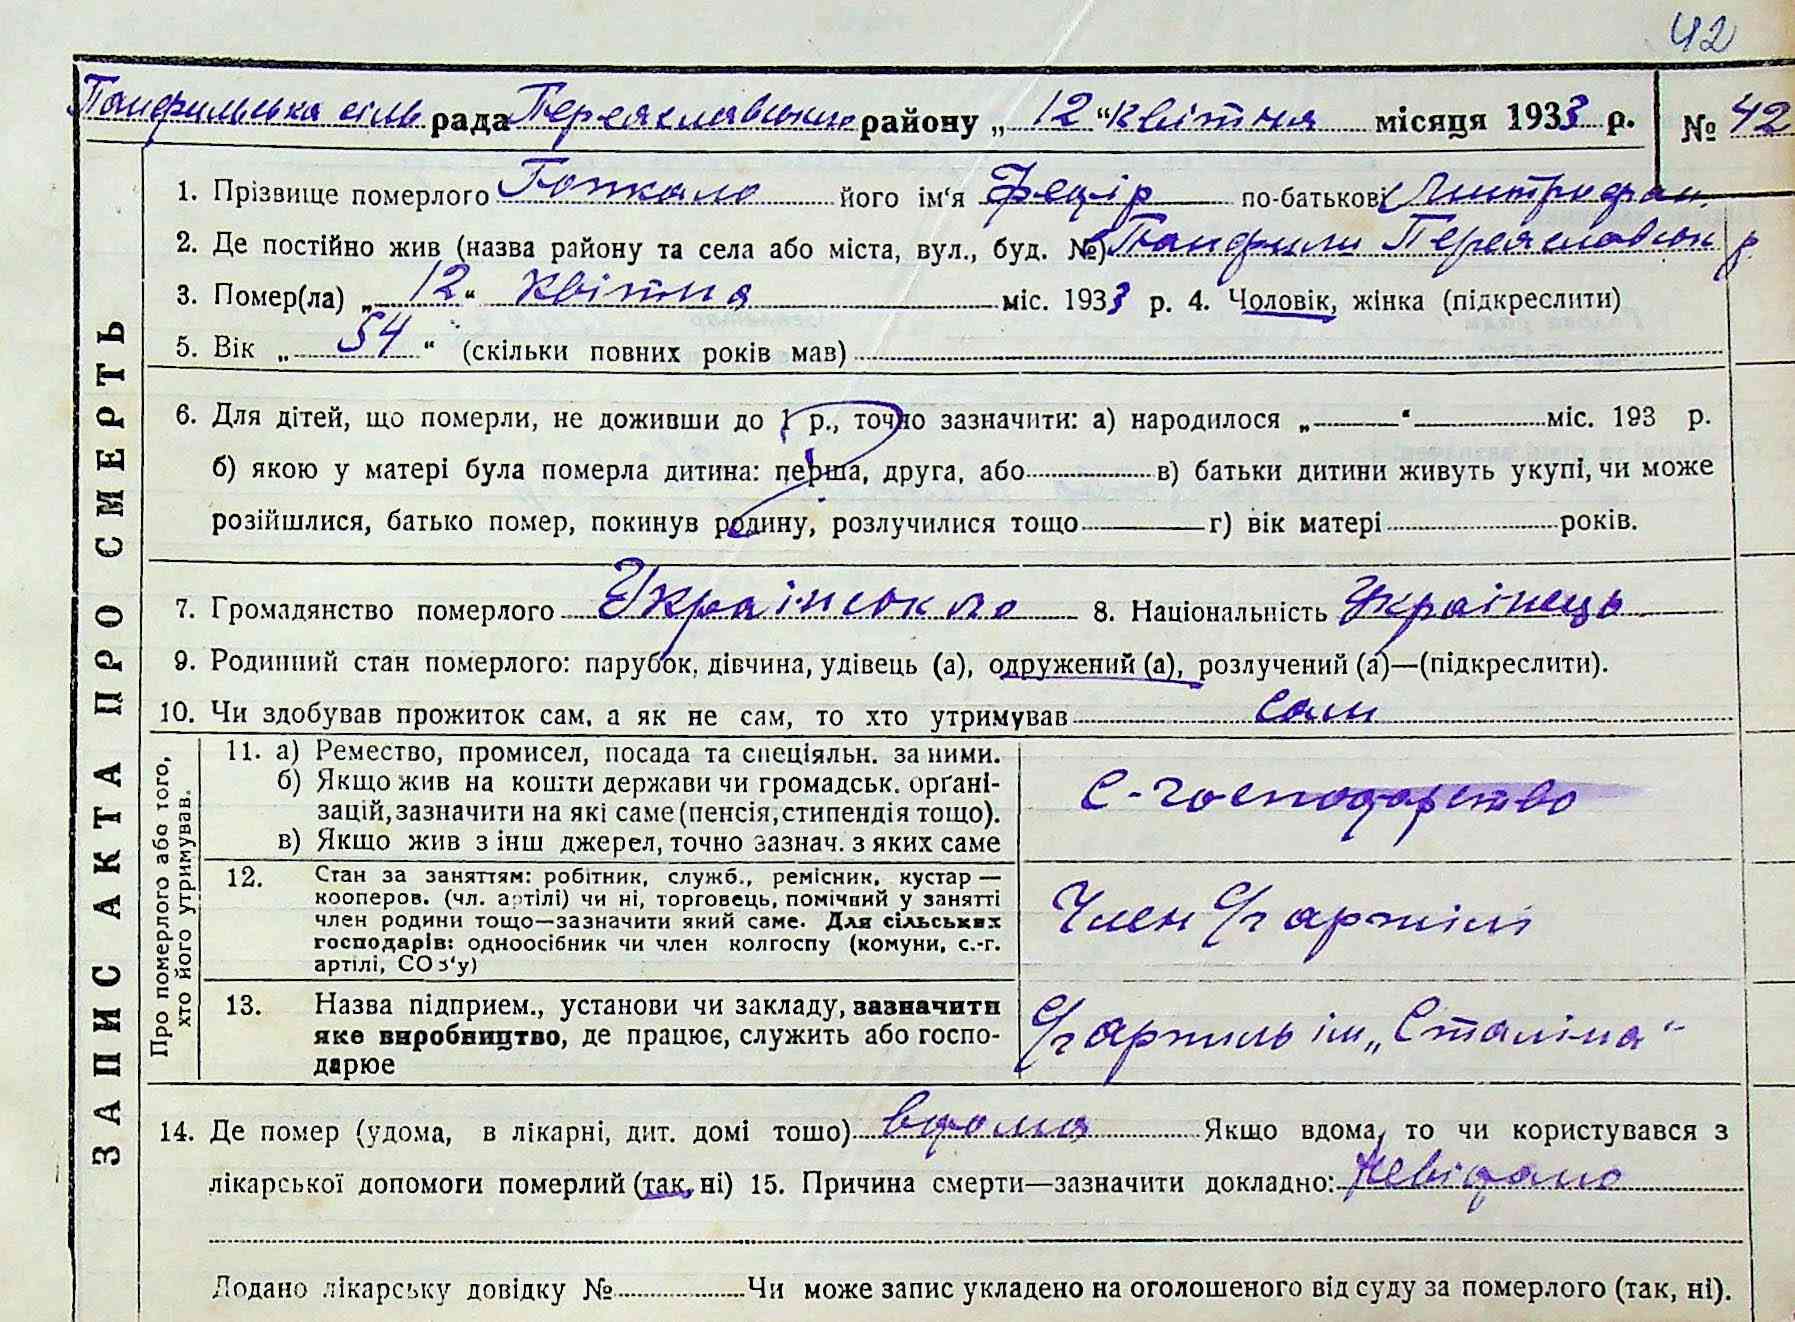 42
Панфильська сіль рада Переяславськ району „ 12 “ квітня місяця 1933 р. № 42
ЗАПИС АКТА ПРО СМЕРТЬ
1. Прізвище померлого його ім'я Федір по-батькові Митрофан.
2. Де постійно жив (назва району та села або міста, вул., буд. №) Панфили Переяславськ р.
3. Помер(ла) „ 12 “ квітня міс. 1933 р. 4. Чоловік, жінка (підкреслити)
5. Вік „ 54 “ (скільки повних років мав)
6. Для дітей, що померли, не доживши до 1 р., точно зазначити: а) народилося „ “ міс. 193 р.
б) якою у матері була померла дитина: перша, друга, або в) батьки дитини живуть укупі, чи може
розійшлися, батько помер, покинув родину, розлучилися тощо г) вік матері років.
7. Громадянство померлого Українське 8. Національність Українець
9. Родинний стан померлого: парубок, дівчина, удівець (а), одружений (а), розлучений (а)—(підкреслити).
10. Чи здобував прожиток сам, а як не сам, то хто утримував сам
Про померлого або того,
хто його утримував.
11. а) Ремество, промисел, посада та спеціяльн. за ними.
б) Якщо жив на кошти держави чи громадськ. органі-
зацій, зазначити на які саме (пенсія, стипендія тощо).
в) Якщо жив з інш джерел, точно зазнач. з яких саме
С-господарство
12. Стан за заняттям: робітник, служб., ремісник, кустар —
кооперов. (чл. артілі) чи ні, торговець, помічний у занятті
член родини тощо—зазначити який саме. Для сільських
господарів: одноосібник чи член колгоспу (комуни, с.-г.
артілі, СОз'у)
Член с/г артілі
13. Назва підприєм., установи чи закладу, зазначити
яке виробництво, де працює, служить або госпо-
дарює
с/г артиль ім „Сталіна“
14. Де помер (удома, в лікарні, дит. домі тошо) вдома Якщо вдома, то чи користувався з
лікарської допомоги померлий (так, ні) 15. Причина смерти—зазначити докладно: невідомо
Додано лікарську довідку № Чи може запис укладено на оголошеного від суду за померлого (так, ні).